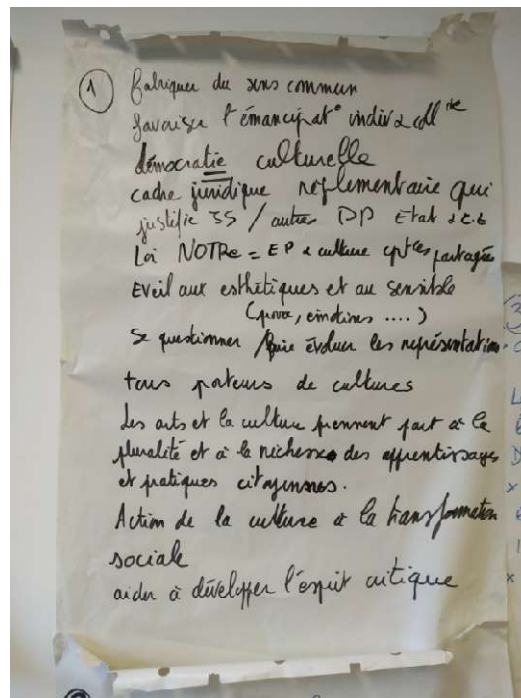 1 fabriquer du sens commun
favoriser l'émancipat° indiv & coll ive
démocratie culturelle
cadre juridique réglementaire qui
justifie SS / autres DP Etat & C.t
Loi NOTRe = EP & culture cptces partagées
Eveil aux esthétiques et au sensible
(émotions ....)
Se questionner / faire évoluer les représentations
tous porteurs de cultures
Les arts et la culture prennent part à la
pluralité et à la richesse des apprentissages
et pratiques citoyennes.
Action de la culture à la transformation
sociale
aider à développer l'esprit critique